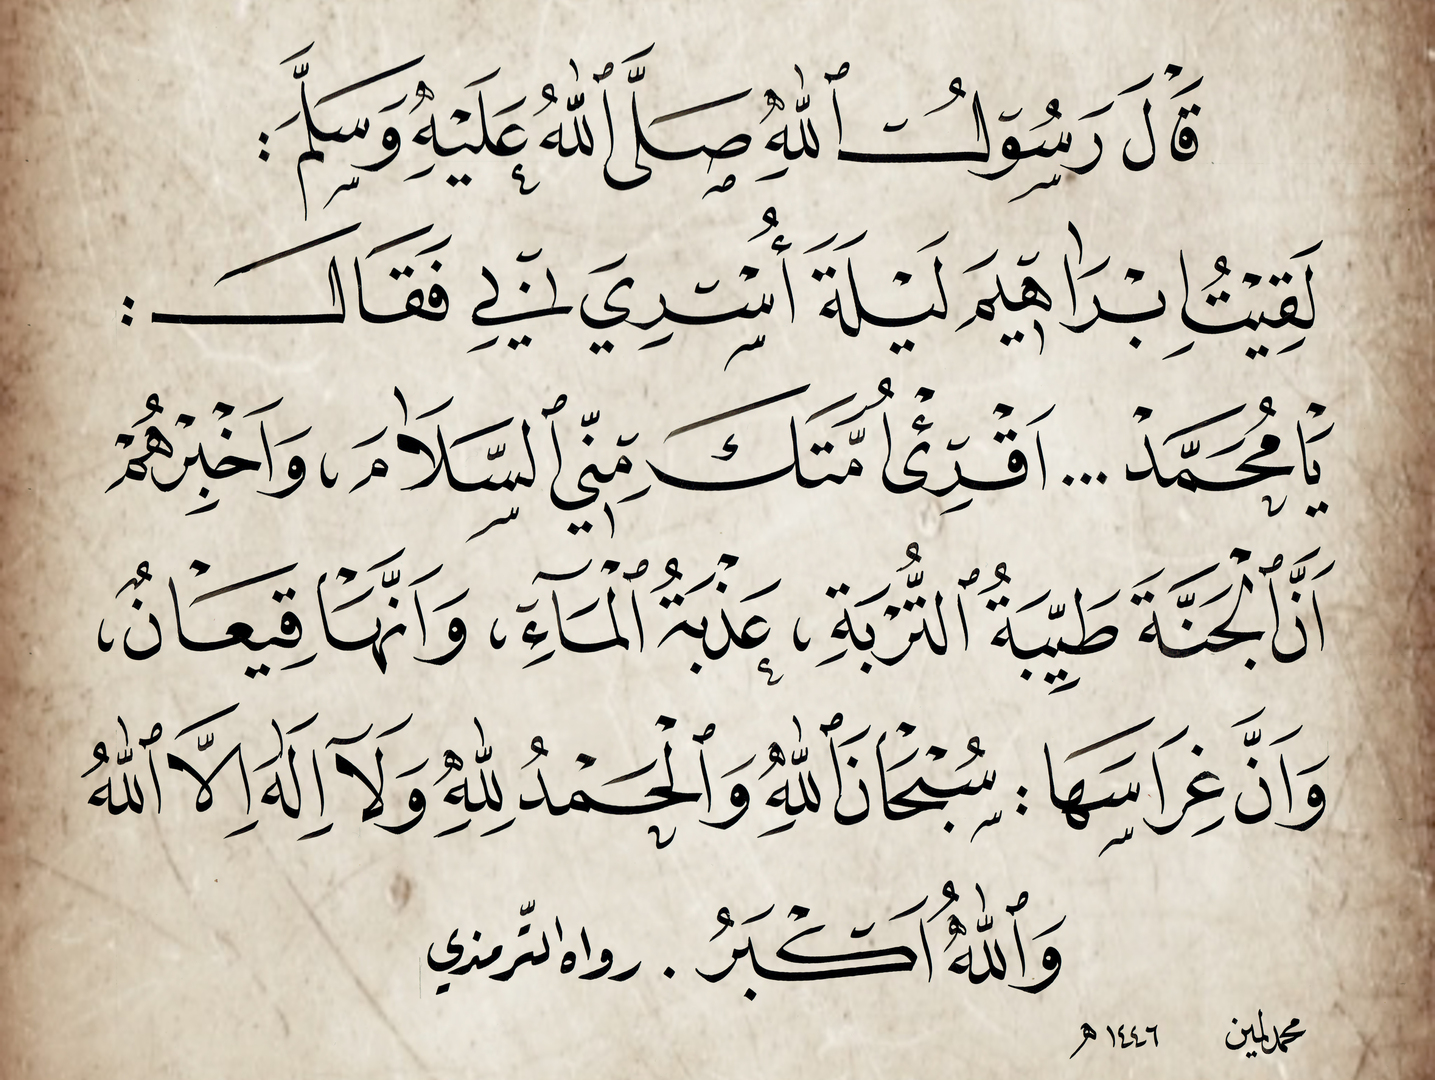 قَالَ رَسُولُ ٱللّٰهِ صَلَّى ٱللّٰهُ عَلَيْهِ وَسَلَّمَ :
لَقِيْتُ اِبْرَاهِيمَ لَيْلَةَ أُسْرِيَ بِي فَقَالَ :
يَا مُحَمَّدْ ... اَقْرِئْ اُمَّتَكَ مِنِّي ٱلسَّلَامَ ، وَاَخْبِرْهُمْ
اَنَّ ٱلْجَنَّةَ طَيِّبَةُ ٱلتُّرْبَةِ ، عَذْبَةُ ٱلْمَآءِ ، وَاَنَّهَا قِيْعَانٌ ،
وَاَنَّ غِرَاسَهَا : سُبْحَانَ ٱللّٰهِ وَٱلْحَمْدُ لِلّٰهِ وَلَآ اِلٰهَ اِلَّا ٱللّٰهُ
وَٱللّٰهُ اَكْبَرُ . رواه الترمذي
١٤٤٦ هـ